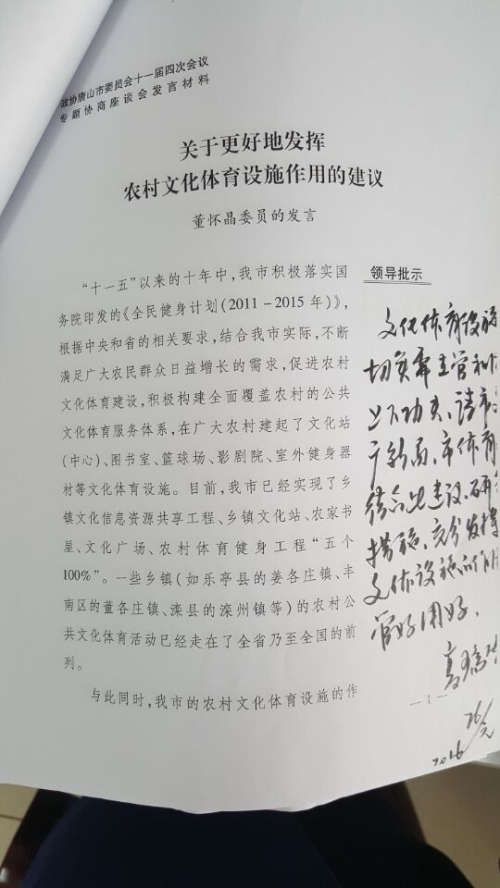 政协唐山市委员会十一届四次会议
专题协商座谈会发言材料
关于更好地发挥
农村文化体育设施作用的建议
董怀晶委员的发言
“十一五”以来的十年中，我市积极落实国
务院印发的《全民健身计划(2011-2015年)》，
根据中央和省的相关要求，结合我市实际，不断
满足广大农民群众日益增长的需求，促进农村
文化体育建设，积极构建全面覆盖农村的公共
文化体育服务体系，在广大农村建起了文化站
(中心)、图书室、篮球场、影剧院、室外健身器
材等文化体育设施。目前，我市已经实现了乡
镇文化信息资源共享工程、乡镇文化站、农家书
屋、文化广场、农村体育健身工程“五个
100%”。一些乡镇(如乐亭县的姜各庄镇、丰
南区的董各庄镇、滦县的滦州镇等)的农村公
共文化体育活动已经走在了全省乃至全国的前
列。
与此同时，我市的农村文化体育设施的作
领导批示
文化体育设施
切实靠主管和
上下功夫、请市
广新局、市体育
结合此建议、研
措施、充分发挥
文体设施
管好用好.
2016
— 1 —